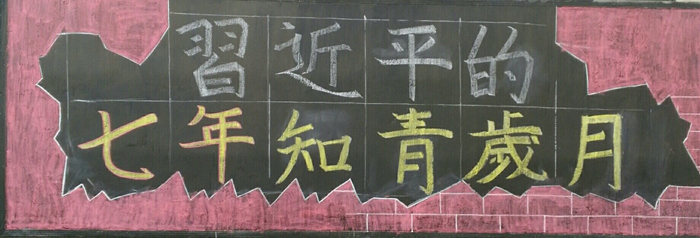 習近平的
七年知青歲月